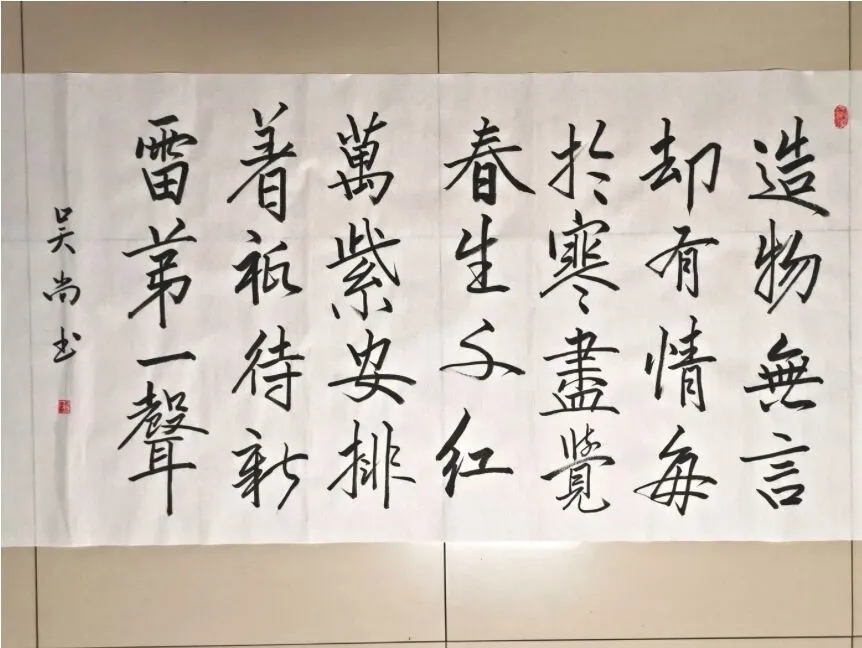 造物無言
却有情每
於寒盡覺
春生千红
萬紫安排
着祗待新
雷苐一聲
吴尚书